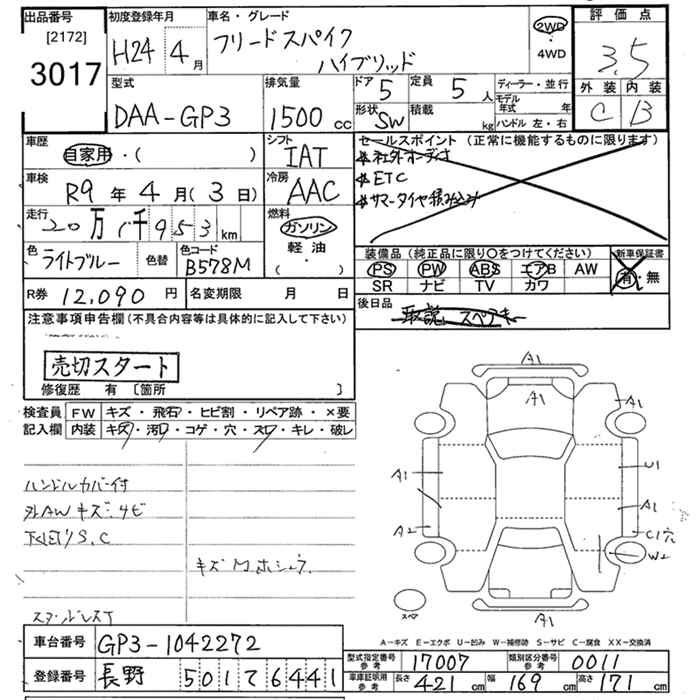 出品番号
[2172]
3017
初度登録年月
H24 4月
車名・グレード
フリードスパイク
ハイブリッド
2WD
・
4WD
評価点
3.5
外装 内装
C B
型式
DAA-GP3
排気量
1500 cc
ドア 5
定員 5人
形状 SW
積載 kg
ディーラー・並行
モデル年式 年
ハンドル 左・右
車歴
自家用・( )
シフト
IAT
車検
R9年4月(3日)
冷房
AAC
走行
20万1千953km
燃料
ガソリン
軽油
( ・ )
色
ライトブルー
色替
色コード
B578M
R券 12,090円
名変期限 月 日
セールスポイント (正常に機能するものに限ります)
*社外オーディオ
*ETC
*サマータイヤ積み込み
装備品 (純正品に限り〇をつけてください)
PS PW ABS エアB AW
SR ナビ TV カワ
新車保証書
有・無
後日品
取説、スペアキー
注意事項申告欄(不具合内容等は具体的に記入して下さい)
売切スタート
修復歴 有 [箇所 ]
検査員 FW キズ・飛石・ヒビ割・リペア跡・×要
記入欄 内装 キズ・汚れ・コゲ・穴・スレ・キレ・破レ
ハンドルカバー付
外AWキズ・サビ
下廻りS.C
キズ M ホシュウ
スタッドレスT
A1
A1
A1
A1
U1
A1
A2
A1
C1穴
W2
A1
スペア
A-キズ E-エクボ U-凹み W-補修跡 S-サビ C-腐食 XX-交換済
車台番号 GP3-1042272
登録番号 長野 501 て 6441
型式指定番号 参考 17007
類別区分番号 参考 0011
車庫証明用 参考 長さ 421cm 幅 169cm 高さ 171cm